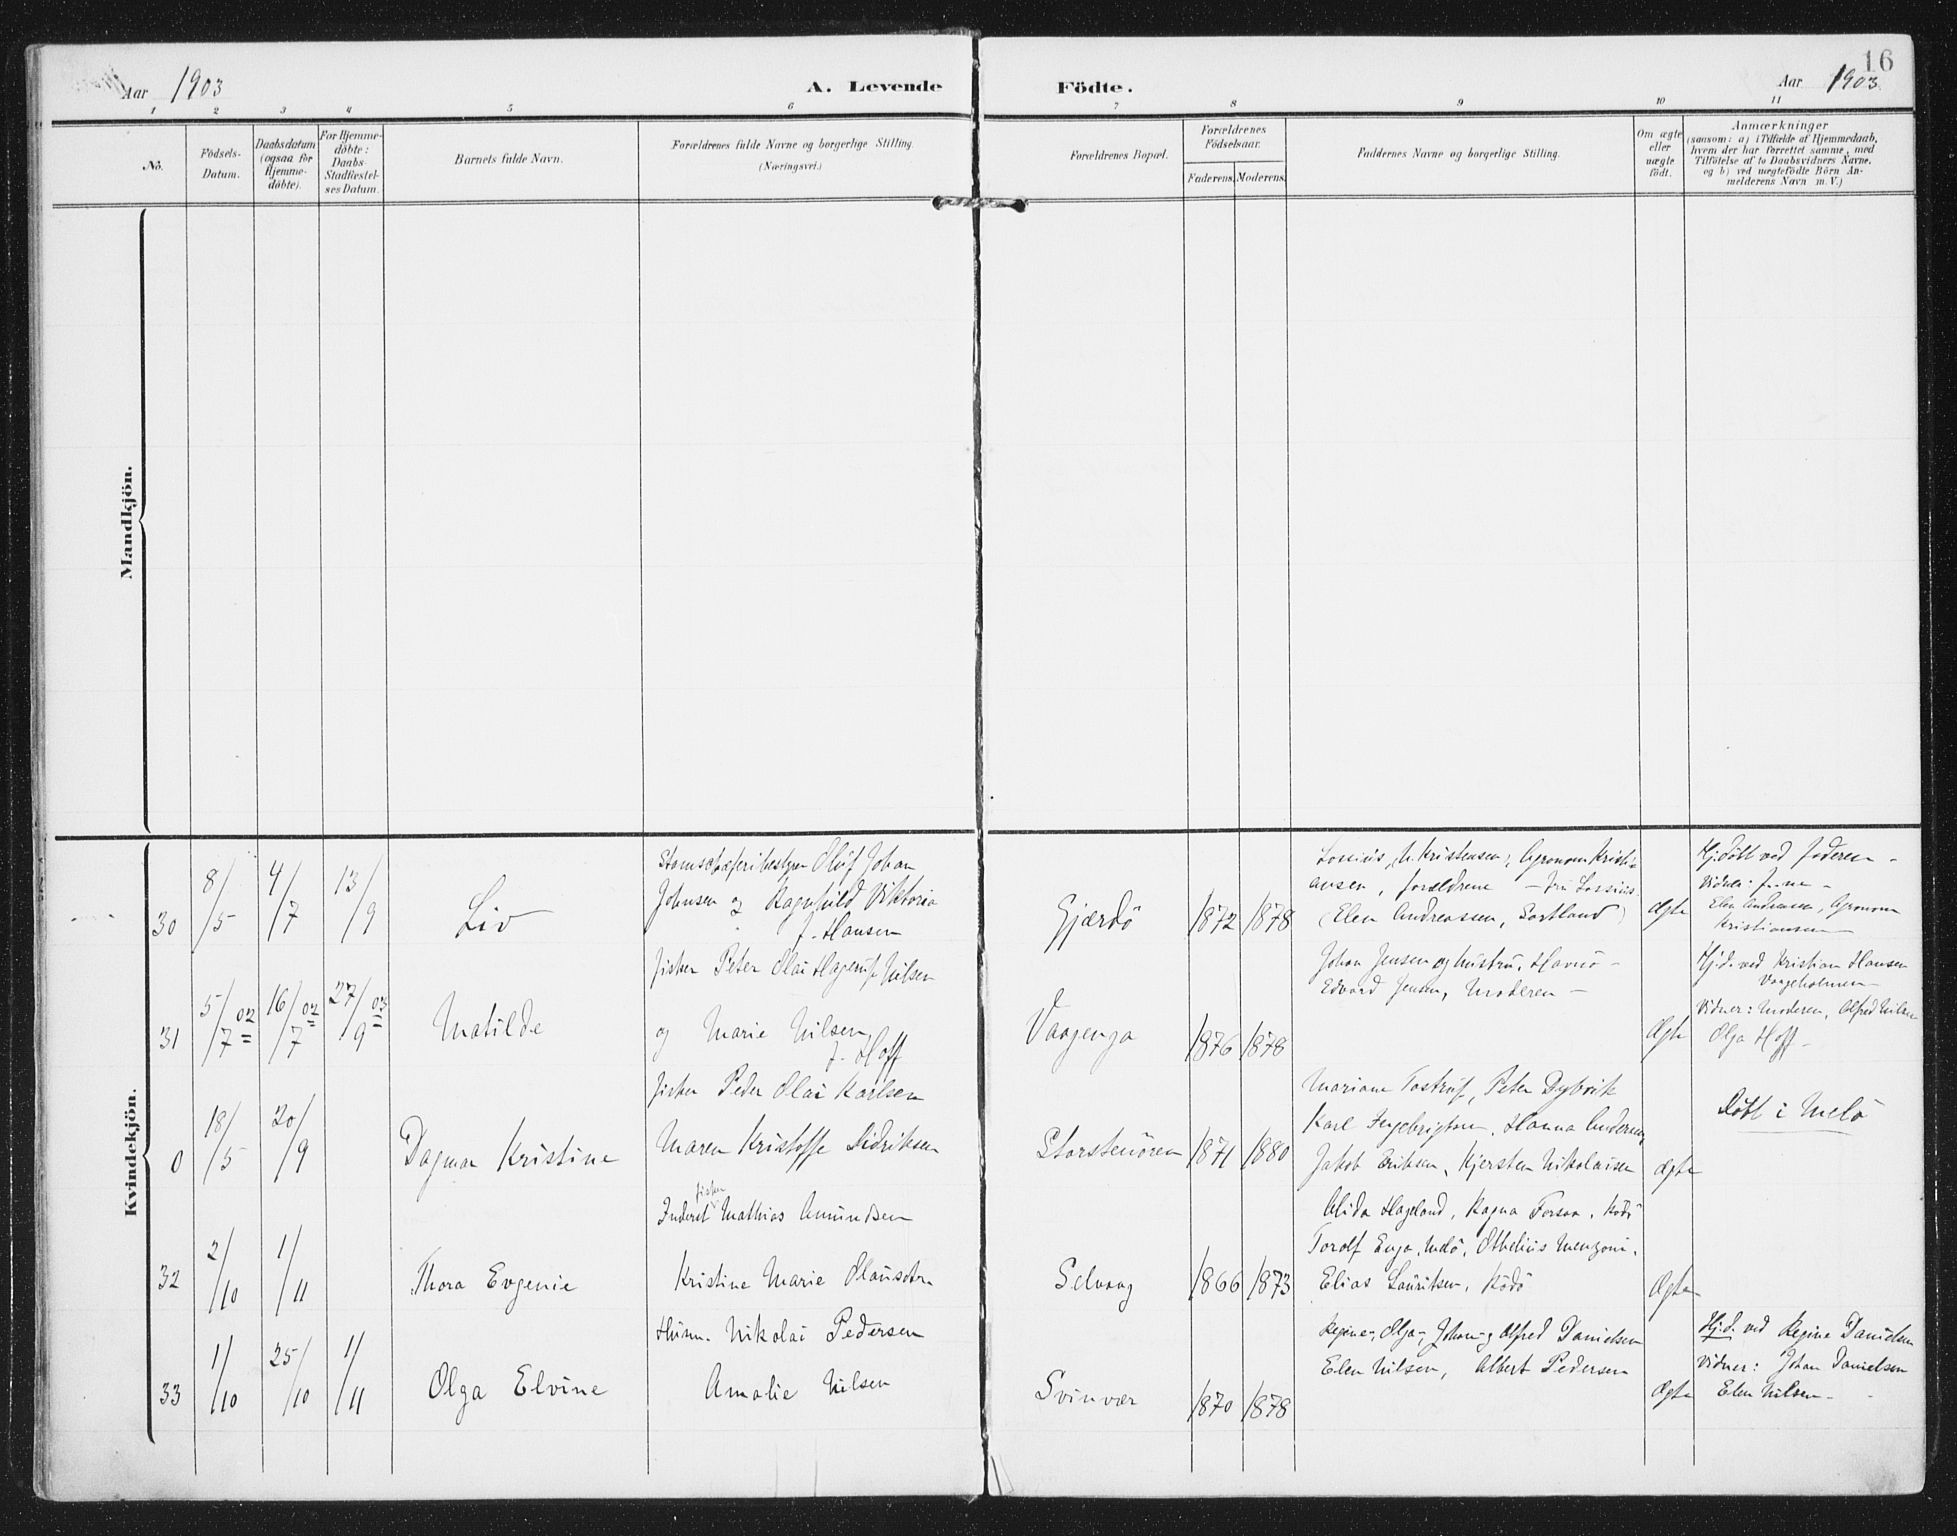 16
Aar 1903
A. Levende Födte.
Aar 1903
1 2 3 4 5 6 7 8 9 10 11
No.
Födsels-
Datum.
Daabsdatum
(ogsaa for
Hjemme-
döbte).
For Hjemme-
döbte:
Daabs-
Stadfæstel-
ses Datum.
Barnets fulde Navn.
Forældrenes fulde Navne og borgerlige Stilling.
(Næringsvei.)
Forældrenes Bopæl.
Forældrenes
Födselsaar.
Faderens. Moderens.
Faddernes Navne og borgerlige Stilling.
Om ægte
eller
uægte
født.
Anmærkninger
(saasom: a) i Tilfælde af Hjemmedaab,
hvem der har forrettet samme, med
Tilföielse af to Daabsvidners Navne.
og b) ved uægtefödte Börn An-
melderens Navn m. V.)
Mandkjön.
Kvindekjön.
30
8/5
4/7
13/9
Liv
Oluf Johan
Johnsen og Ragnhild Viktoria
f. Hansen
Gjærdö
1872 1878
Lossius, N. Kristensen, Agronom Kristi-
ansen, forældrene – Fru Lossius
(Elen Andreassen, Sortland)
Ægte
Hj. döbt ved Faderen –
Vidner:
Elen Andreassen, Agronom
Kristiansen
31
5/7 02
16/7 02
27/9 03
Matilde
fisker Peter Olai Hagerup Nilsen
og Marie Nilsen
f. Hoff
Vaagenga
1876 1878
Johan Jensen og hustru, Havnö –
Edvard Jensen, Moderen –
Ægte
Hj. d. ved Kristian Hansen
Vaageholmen
Vidner: Moderen, Alfred Nilsen
Olga Hoff –
0
18/5
20/9
Dagmar Kristine
fisker Peder Olai Karlsen
Maren Kristoffa Didriksen
Storstenören
1871 1880
Mariane Tostrup, Peter Dybvik
Karl Ingebrigtsen, Hanna Andersen,
Jakob Eriksen, Kjersten Nikolaisen
ægte
Döbt i Melö
32
2/10
1/11
Thora Evgenie
fisker
Inderst Mathias Amundsen
Kristine Marie Olausdtr.
Selvaag
1866 1873
Alida Hageland, Ragna Forsaa, Rödö
Torolf Enga, Melö, Othelius Menzoni,
Elias Lauritsen, Rödö
Ægte
33
1/10
25/10
1/11
Olga Elvine
Husm. Nikolai Pedersen
Amalie Nilsen
Svinvær
1870 1878
Regine-, Olga-, Johan- og Alfred Danielsen
Elen Nilsen, Albert Pedersen
Ægte
Hj. d. ved Regine Danielsen
Vidner: Johan Danielsen
Elen Nilsen –